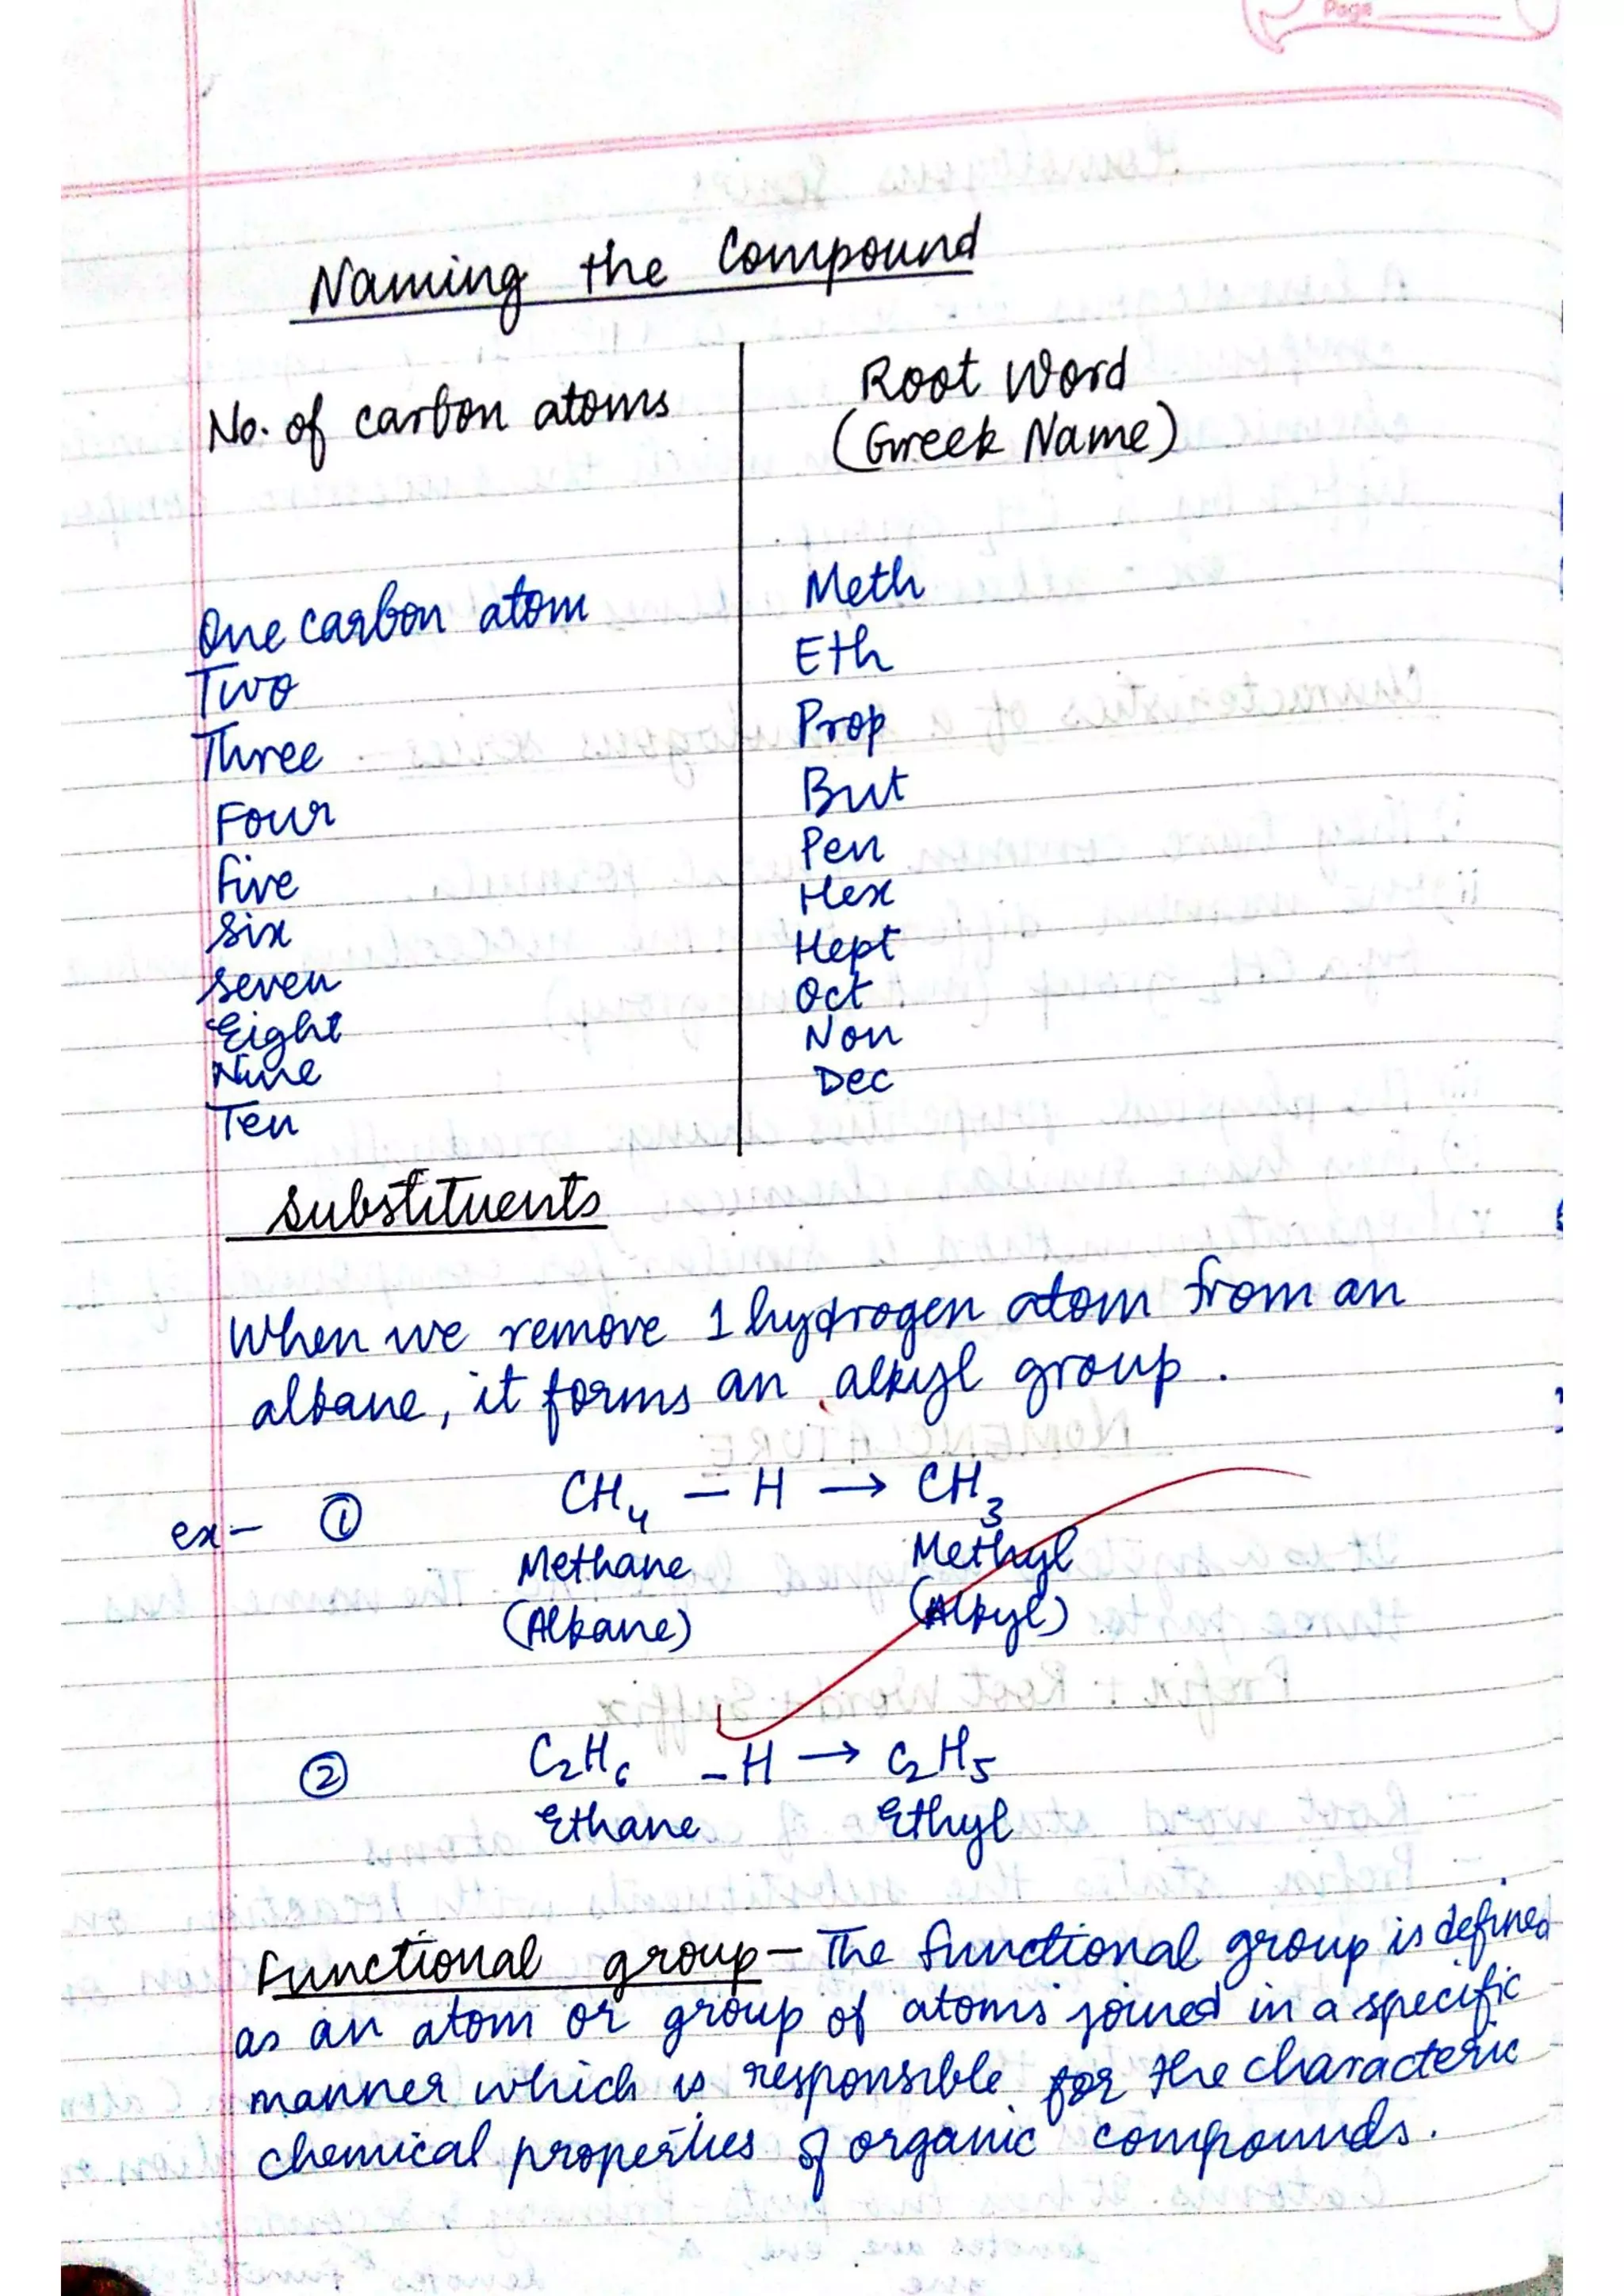 Page
Naming the Compound
No. of carbon atoms
Root Word
(Greek Name)
One carbon atom
Meth
Two
Eth
Three
Prop
Four
But
Five
Pen
Six
Hex
Seven
Hept
Eight
Oct
Nine
Non
Ten
Dec
Substituents
When we remove 1 hydrogen atom from an
alkane, it forms an alkyl group.
ex- ① CH₄ - H → CH₃
Methane Methyl
(Alkane) (Alkyl)
② C₂H₆ - H → C₂H₅
Ethane Ethyl
Functional group - The functional group is defined
as an atom or group of atoms joined in a specific
manner which is responsible for the characteric
chemical properties of organic compounds.